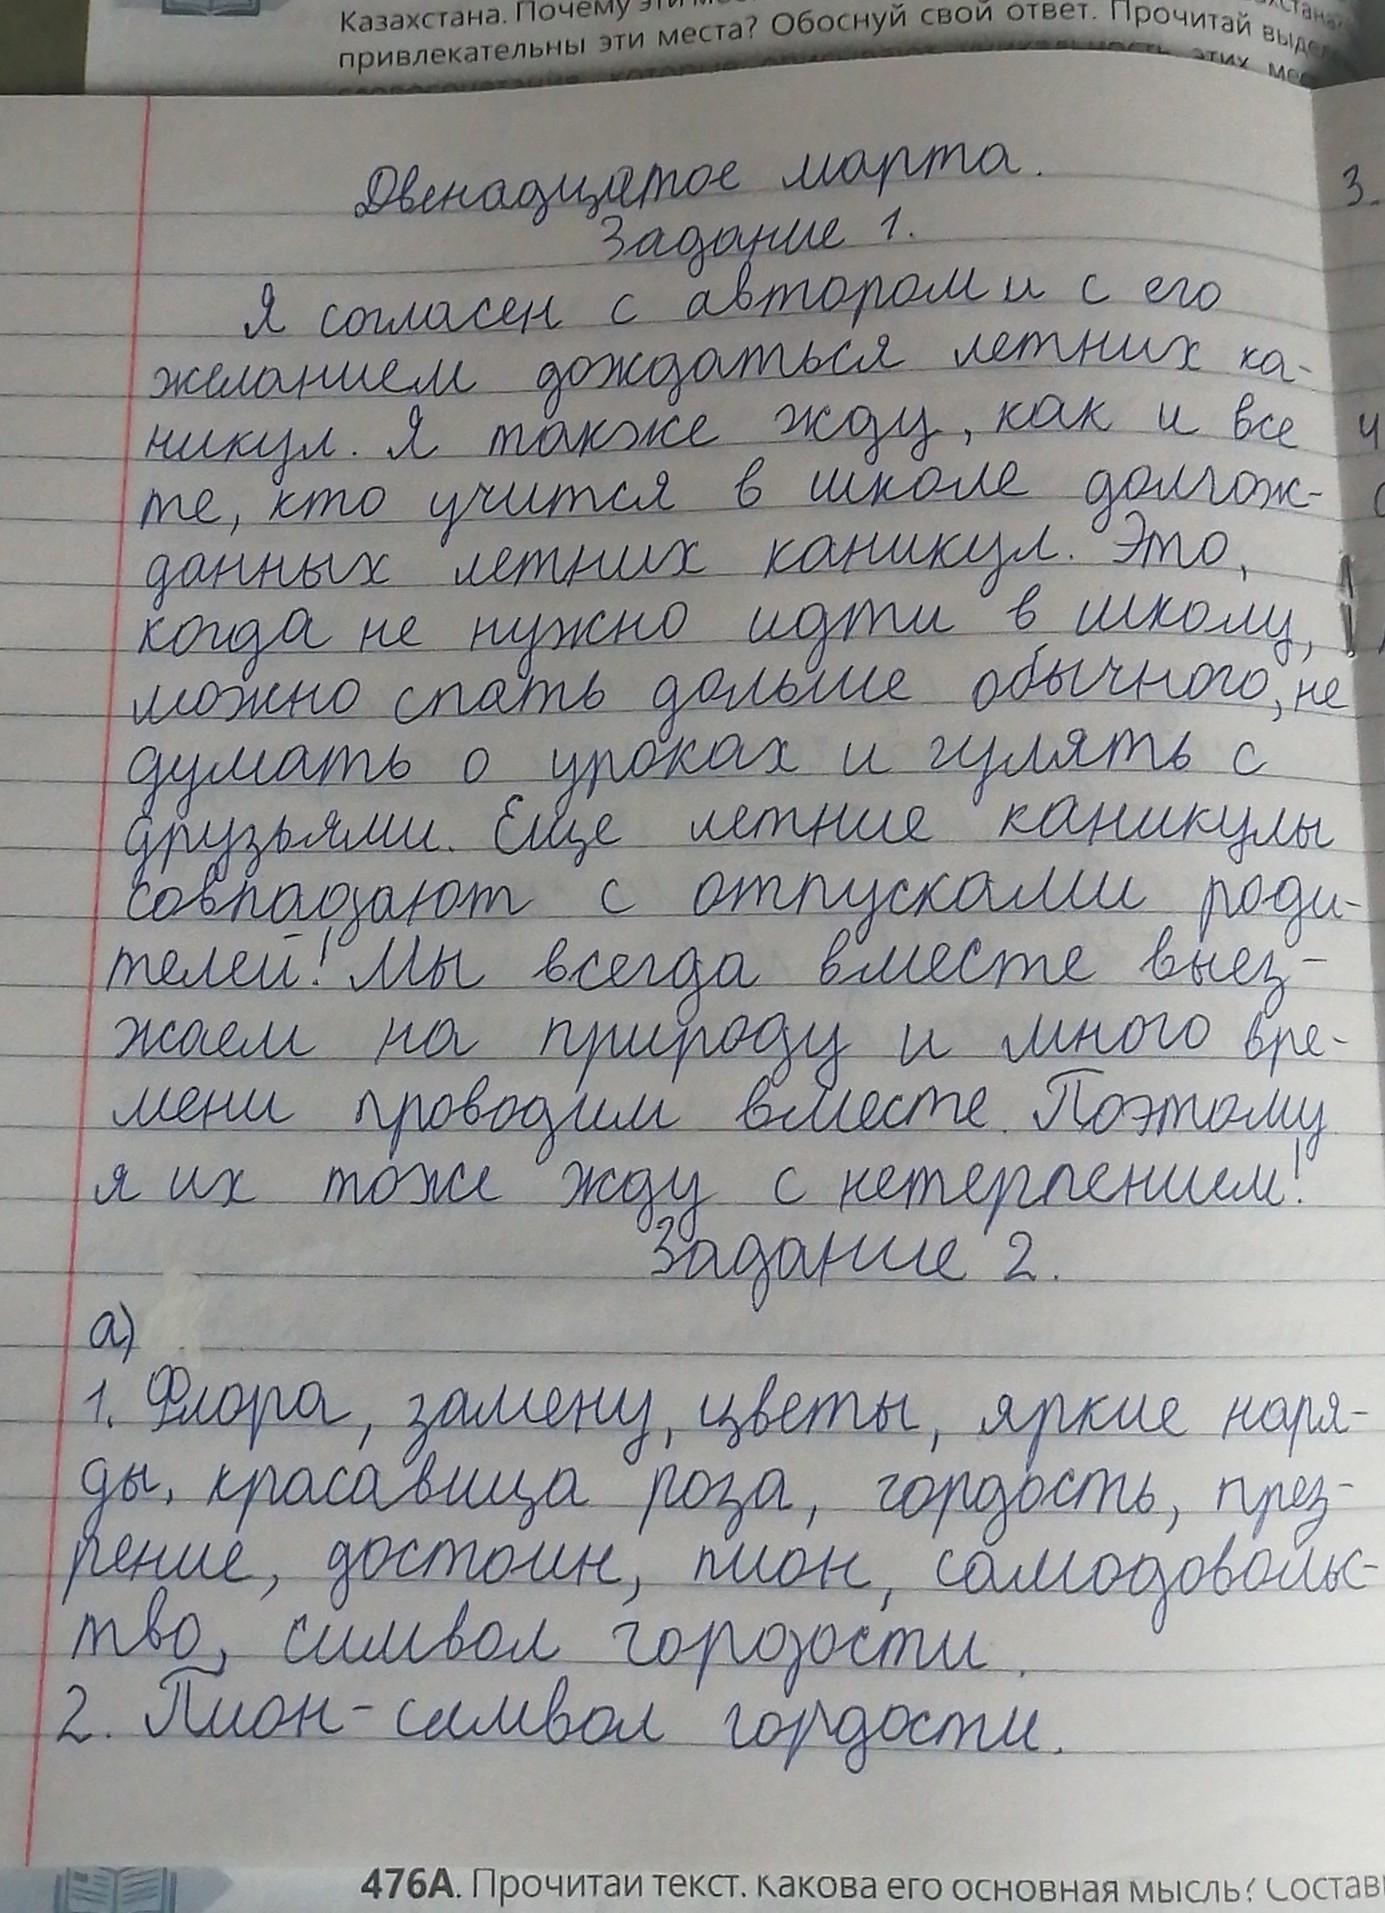 Казахстана. Почему эти
привлекательны эти места? Обоснуй свой ответ. Прочитай
Двенадцатое марта.
3.
Задание 1.
Я согласен с автором и с его
желанием дождаться летних ка-
никул. Я также жду, как и все
те, кто учится в школе долгож-
данных летних каникул. Это,
когда не нужно идти в школу,
можно спать дольше обычного, не
думать о уроках и гулять с
друзьями. Еще летние каникулы
совпадают с отпусками роди-
телей! Мы всегда вместе выез-
жаем на природу и много вре-
мени проводим вместе. Поэтому
я их тоже жду с нетерпением!
Задание 2.
а)
1. Флора, замену, цветы, яркие наря-
ды, красавица роза, гордость, през-
рение, достоин, пион, самодоволь-
тво, символ гордости.
2. Пион - символ гордости.
476А. Прочитай текст. Какова его основная мысль?